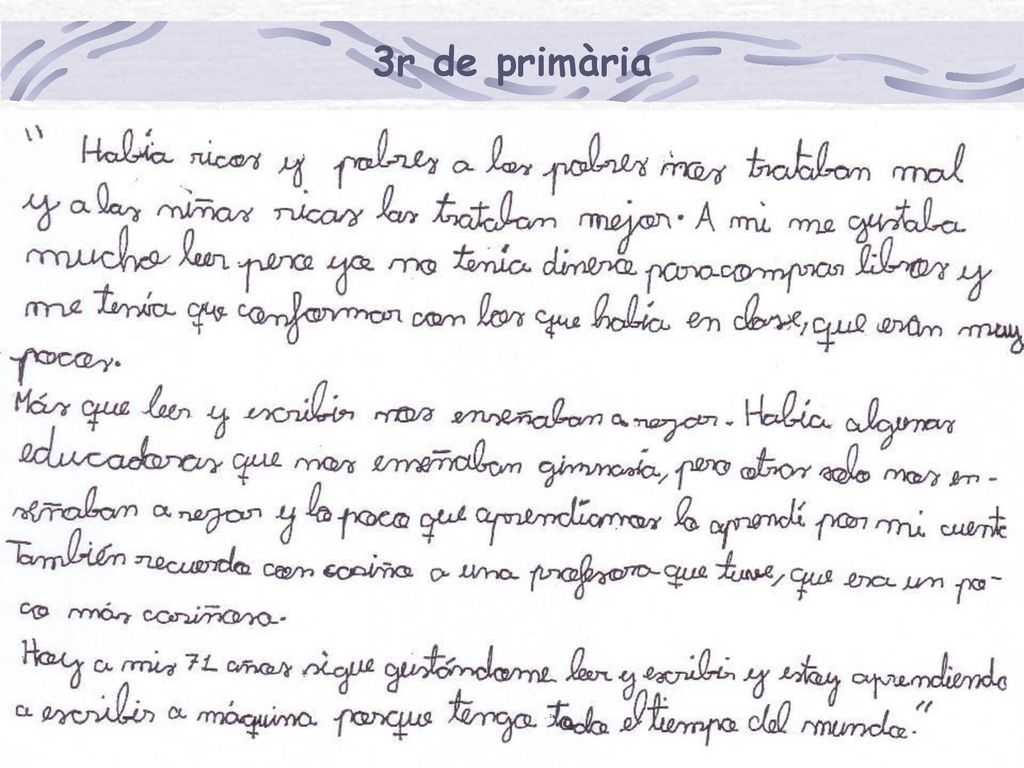 3r de primària
" Había ricos y pobres a los pobres nos trataban mal
y a las niñas ricas las trataban mejor. A mi me gustaba
mucho leer pero yo no tenía dinero para comprar libros y
me tenía que conformar con los que había en clase, que eran muy
pocos.
Más que leer y escribir nos enseñaban a rezar. Había algunas
educadoras que nos enseñaban gimnasía, pero otros solo nos en-
señaban a rezar y lo poco que aprendíamos lo aprendí por mi cuente
También recuerdo con cariño a una profesora que tuve, que era un po-
co más cariñosa.
Hoy a mis 71 años sigue gustándome leer y escribir y estoy aprendiendo
a escribir a máquina porque tengo todo el tiempo del mundo."